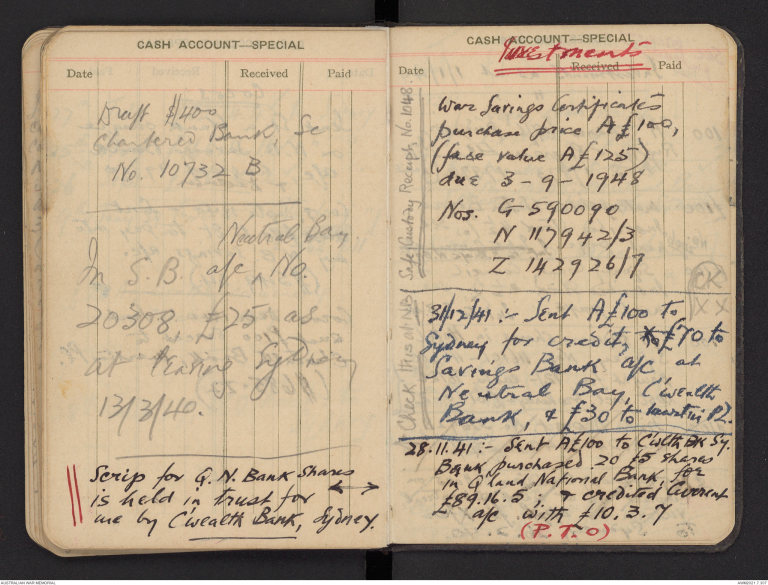 CASH ACCOUNT—SPECIAL
Date Received Paid
Draft $400
Chartered Bank, Sc
No. 10732 B
Neutral Bay
In S.B. a/c ^ No.
20308, £25 as
at leaving Sydney
13/3/40.
Scrip for Q.N. Bank Shares
is held in trust for
me by C'wealth Bank, Sydney.
CASH ACCOUNT—SPECIAL
Investments
Date Received Paid
Check this at NB/ Safe Custody Receipt, No. 1048.
War Savings Certificates
purchase price A£100,
(face value A£125)
due 3-9-1948
Nos. G 590090
N 117942/3
Z 142926/7
31/12/41:- Sent A£100 to
Sydney for credit, £70 to
Savings Bank a/c at
Neutral Bay, C'wealth
Bank, & £30 to Martin Pl.
28.11.41:- Sent A£100 to C'wlth Bk Sy.
Bank purchased 20 £5 shares
in Q'land National Bank, for
£89.16.5; & credited Current
a/c with £10.3.7
(P.T.O)
AUSTRALIAN WAR MEMORIAL